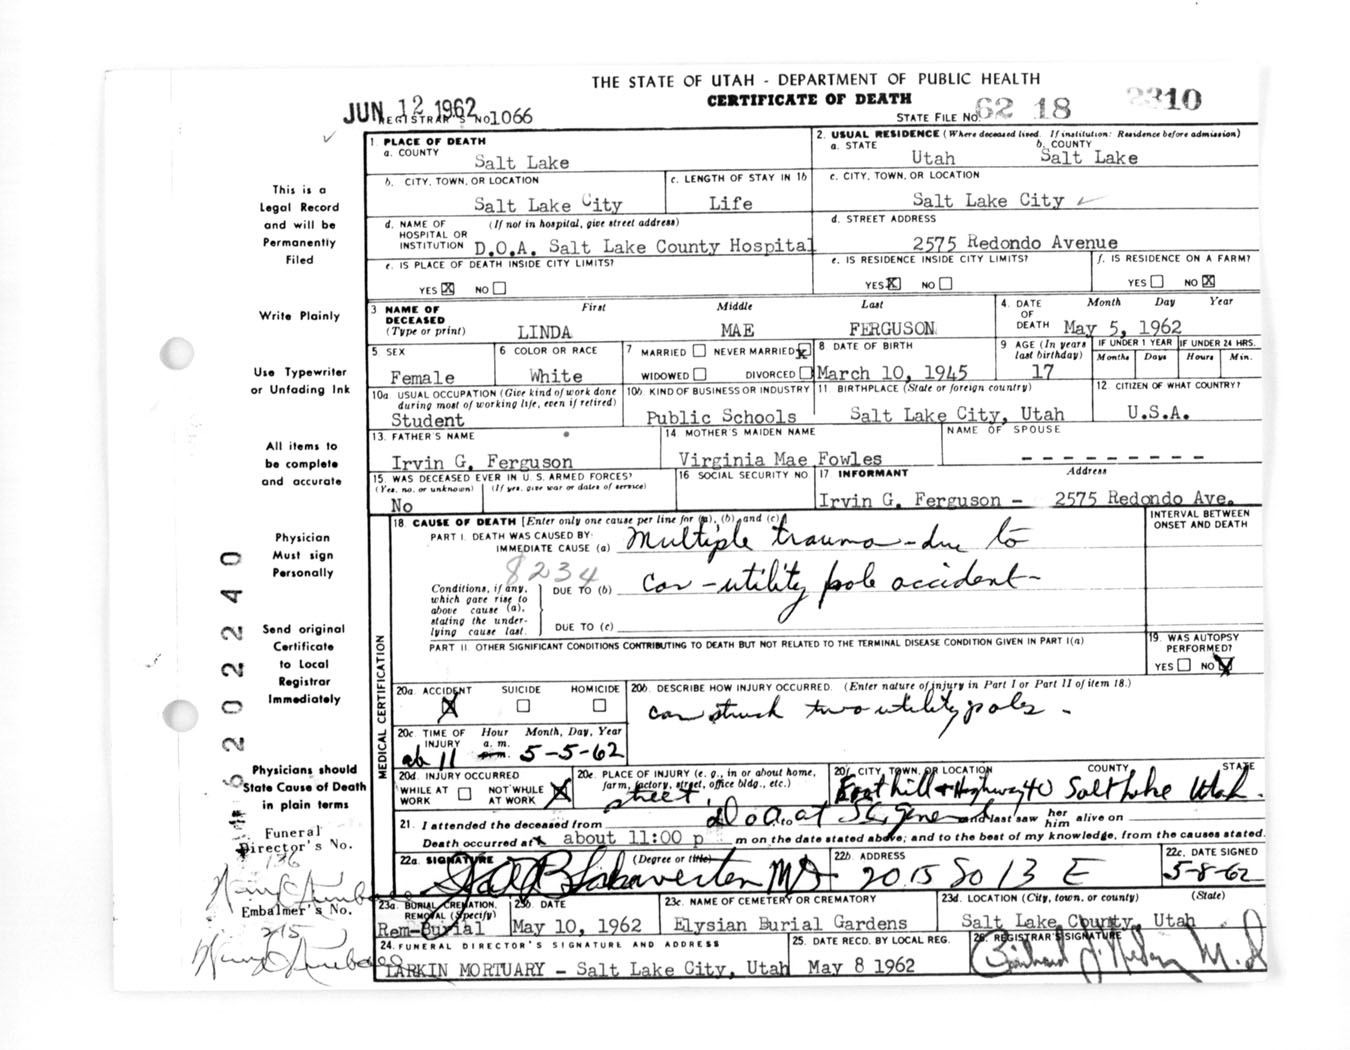 THE STATE OF UTAH - DEPARTMENT OF PUBLIC HEALTH
CERTIFICATE OF DEATH
JUN 12 1962
REGISTRAR'S NO. 1066
STATE FILE NO. 62 18 2310
This is a
Legal Record
and will be
Permanently
Filed
Write Plainly
Use Typewriter
or Unfading Ink
All items to
be complete
and accurate
Physician
Must sign
Personally
Send original
Certificate
to Local
Registrar
Immediately
Physicians should
State Cause of Death
in plain terms
Funeral
Director's No.
136
Embalmer's No.
215
2022240
1 PLACE OF DEATH
a. COUNTY
Salt Lake
2. USUAL RESIDENCE (Where deceased lived. If institution: Residence before admission)
a. STATE b. COUNTY
Utah Salt Lake
b. CITY, TOWN, OR LOCATION
Salt Lake City
c. LENGTH OF STAY IN 1b
Life
c. CITY, TOWN, OR LOCATION
Salt Lake City
d. NAME OF (If not in hospital, give street address)
HOSPITAL OR
INSTITUTION D.O.A. Salt Lake County Hospital
d. STREET ADDRESS
2575 Redondo Avenue
e. IS PLACE OF DEATH INSIDE CITY LIMITS?
YES X NO
e. IS RESIDENCE INSIDE CITY LIMITS?
YES X NO
f. IS RESIDENCE ON A FARM?
YES NO X
3 NAME OF First Middle Last
DECEASED
(Type or print) LINDA MAE FERGUSON
4. DATE Month Day Year
OF
DEATH May 5, 1962
5 SEX
Female
6 COLOR OR RACE
White
7 MARRIED NEVER MARRIED X
WIDOWED DIVORCED
8 DATE OF BIRTH
March 10, 1945
9 AGE (In years last birthday)
17
IF UNDER 1 YEAR IF UNDER 24 HRS.
Months Days Hours Min.
10a USUAL OCCUPATION (Give kind of work done
during most of working life, even if retired)
Student
10b. KIND OF BUSINESS OR INDUSTRY
Public Schools
11 BIRTHPLACE (State or foreign country)
Salt Lake City, Utah
12 CITIZEN OF WHAT COUNTRY?
U.S.A.
13. FATHER'S NAME
Irvin G. Ferguson
14 MOTHER'S MAIDEN NAME
Virginia Mae Fowles
NAME OF SPOUSE
- - - - - - - - -
15. WAS DECEASED EVER IN U.S. ARMED FORCES?
(Yes, no, or unknown) (If yes, give war or dates of service)
No
16 SOCIAL SECURITY NO.
17 INFORMANT Address
Irvin G. Ferguson - 2575 Redondo Ave.
MEDICAL CERTIFICATION
18. CAUSE OF DEATH [Enter only one cause per line for (a), (b), and (c)]
INTERVAL BETWEEN
ONSET AND DEATH
PART I. DEATH WAS CAUSED BY:
IMMEDIATE CAUSE (a) Multiple trauma - due to
8234
Conditions, if any,
which gave rise to
above cause (a),
stating the under-
lying cause last.
DUE TO (b) car - utility pole accident -
DUE TO (c)
PART II. OTHER SIGNIFICANT CONDITIONS CONTRIBUTING TO DEATH BUT NOT RELATED TO THE TERMINAL DISEASE CONDITION GIVEN IN PART I(a)
19. WAS AUTOPSY
PERFORMED?
YES NO X
20a. ACCIDENT SUICIDE HOMICIDE
X
20b. DESCRIBE HOW INJURY OCCURRED. (Enter nature of injury in Part I or Part II of item 18.)
car struck two utility poles -
20c. TIME OF Hour Month, Day, Year
INJURY a. m.
ab 11 5-5-62
20d. INJURY OCCURRED
WHILE AT WORK NOT WHILE AT WORK X
20e. PLACE OF INJURY (e. g., in or about home,
farm, factory, street, office bldg., etc.)
street
20f. CITY, TOWN, OR LOCATION COUNTY STATE
Foothill + Highway 40 Salt Lake Utah.
21. I attended the deceased from D.O.A. at S.L. General and last saw her him alive on
Death occurred at about 11:00 p m on the date stated above; and to the best of my knowledge, from the causes stated.
22a. SIGNATURE (Degree or title)
MD
22b. ADDRESS
2015 So 13 E
22c. DATE SIGNED
5-8-62
23a. BURIAL, CREMATION,
REMOVAL (Specify)
Rem-Burial
23b. DATE
May 10, 1962
23c. NAME OF CEMETERY OR CREMATORY
Elysian Burial Gardens
23d. LOCATION (City, town, or county) (State)
Salt Lake County, Utah
24. FUNERAL DIRECTOR'S SIGNATURE AND ADDRESS
LARKIN MORTUARY - Salt Lake City, Utah
25. DATE RECD. BY LOCAL REG.
May 8 1962
26. REGISTRAR'S SIGNATURE
M.D